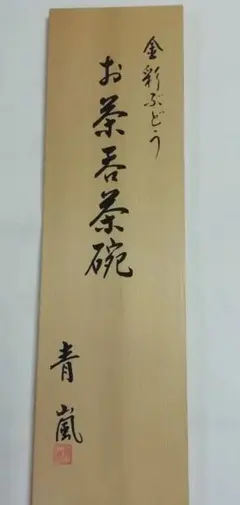 金彩ぶどう
お茶呑茶碗
青嵐